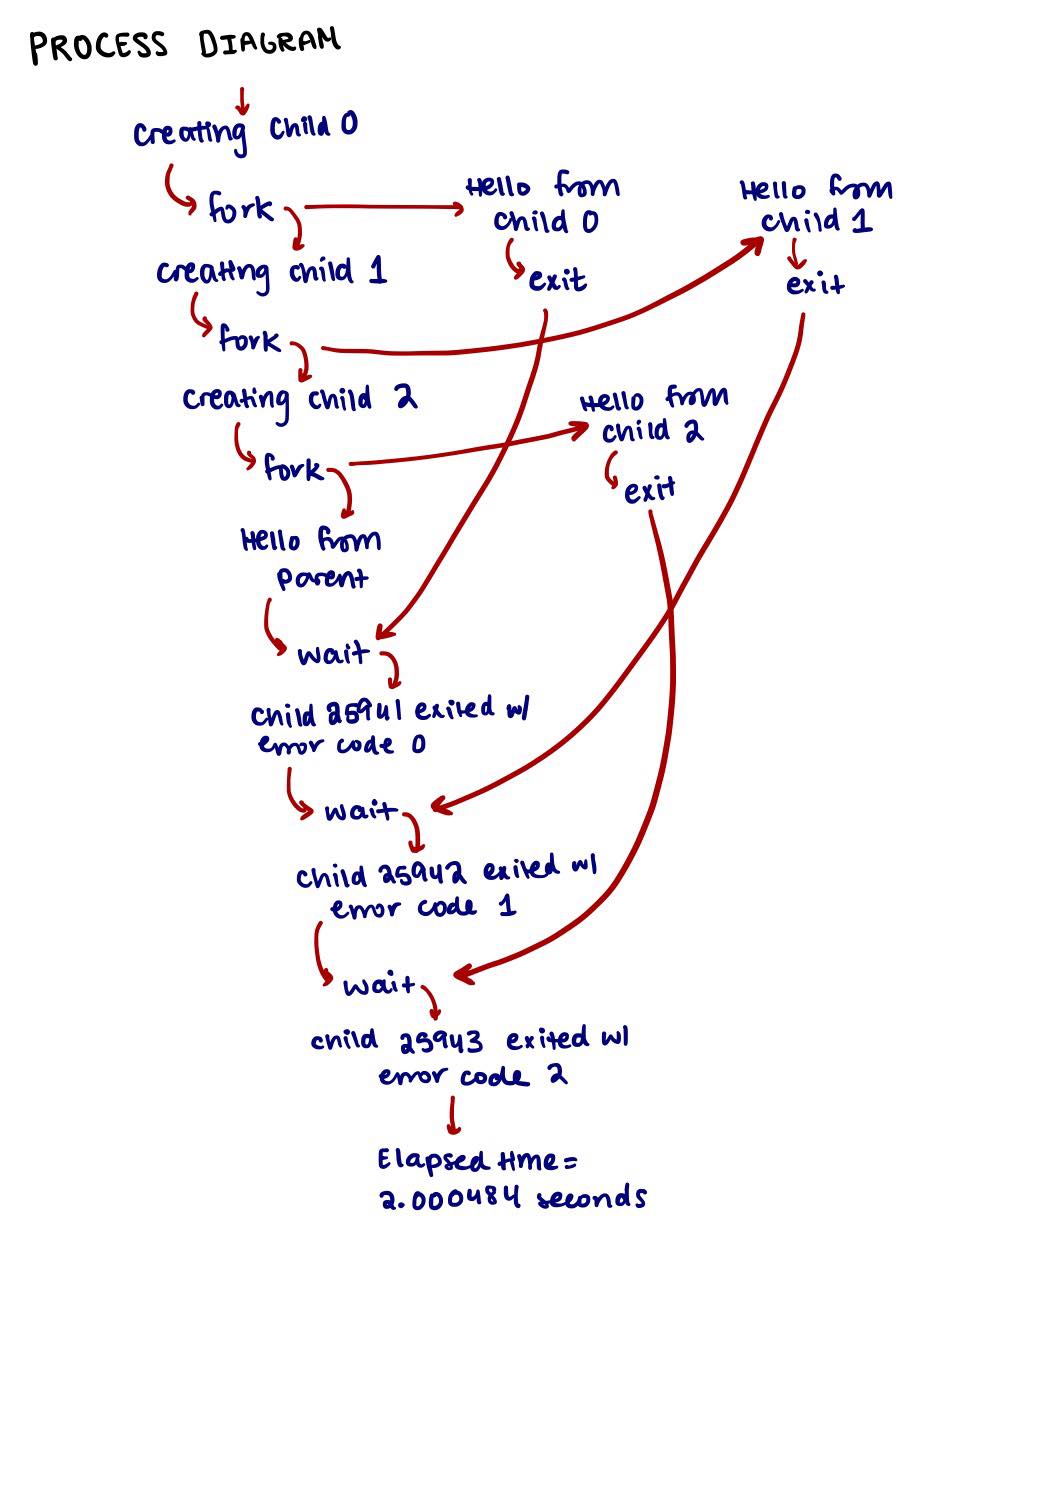 PROCESS DIAGRAM
creating child 0
fork
Hello from
child 0
exit
Hello from
child 1
exit
creating child 1
fork
creating child 2
fork
Hello from
child 2
exit
Hello from
parent
wait
child 25941 exited w/
error code 0
wait
child 25942 exited w/
error code 1
wait
child 25943 exited w/
error code 2
Elapsed time =
2.000484 seconds